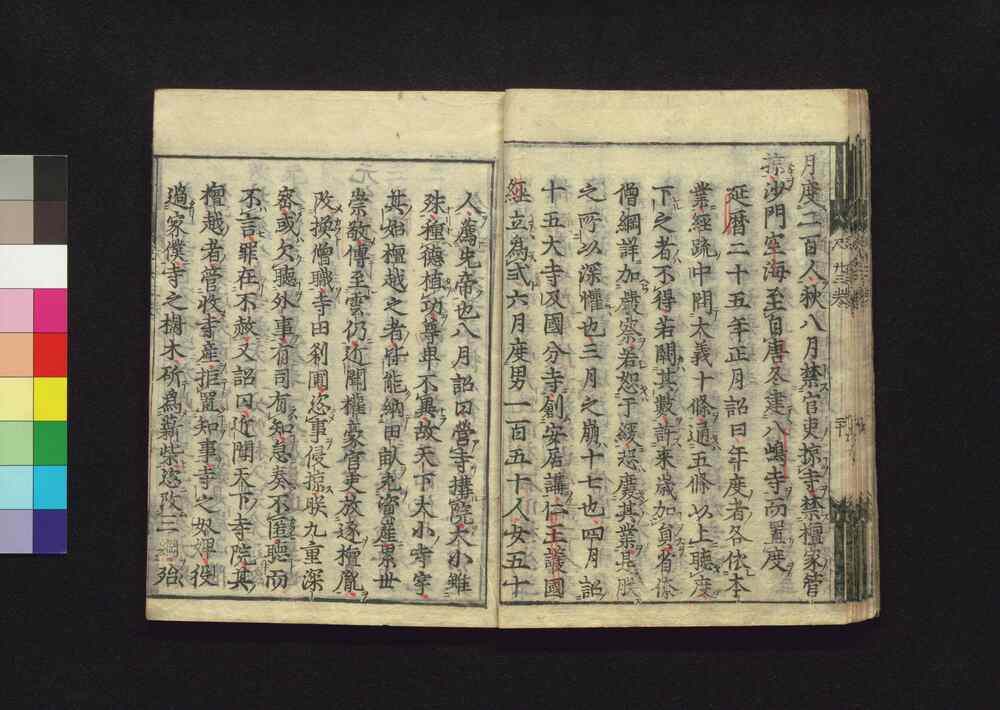 月度二百人秋八月禁官吏掠寺禁檀家管
掠沙門空海至自唐冬建八嶋寺而置度
延暦二十五年正月詔曰年度者各依本
業經疏中問大義十條通五條以上聽度
下之者不得若闕其數許來歳加貟省條
僧綱詳加嚴察若恕于緩恐廢其業是朕
之所以深懼也三月之崩十七也四月詔
十五大寺又國分寺創安居講仁王護國
經立為式六月度男一百五十人女五十
人薦先帝也八月詔曰營寺搆院大小雖
殊種德植功尊卑不異故天下大小寺宇
其始檀越之者皆能納田畝充資產累世
崇敬傳至雲仍近聞權家官吏放逐檀胤
改換僧職寺田利圃恣事侵掠朕九重深
密或欠聽外事有司有知急奏不匿聴而
不言罪在不赦又詔曰近聞天下寺院其
檀越者管收寺產推置知事寺之奴婢役
過家僕寺之樹木斫爲薪柴恣改三 殆